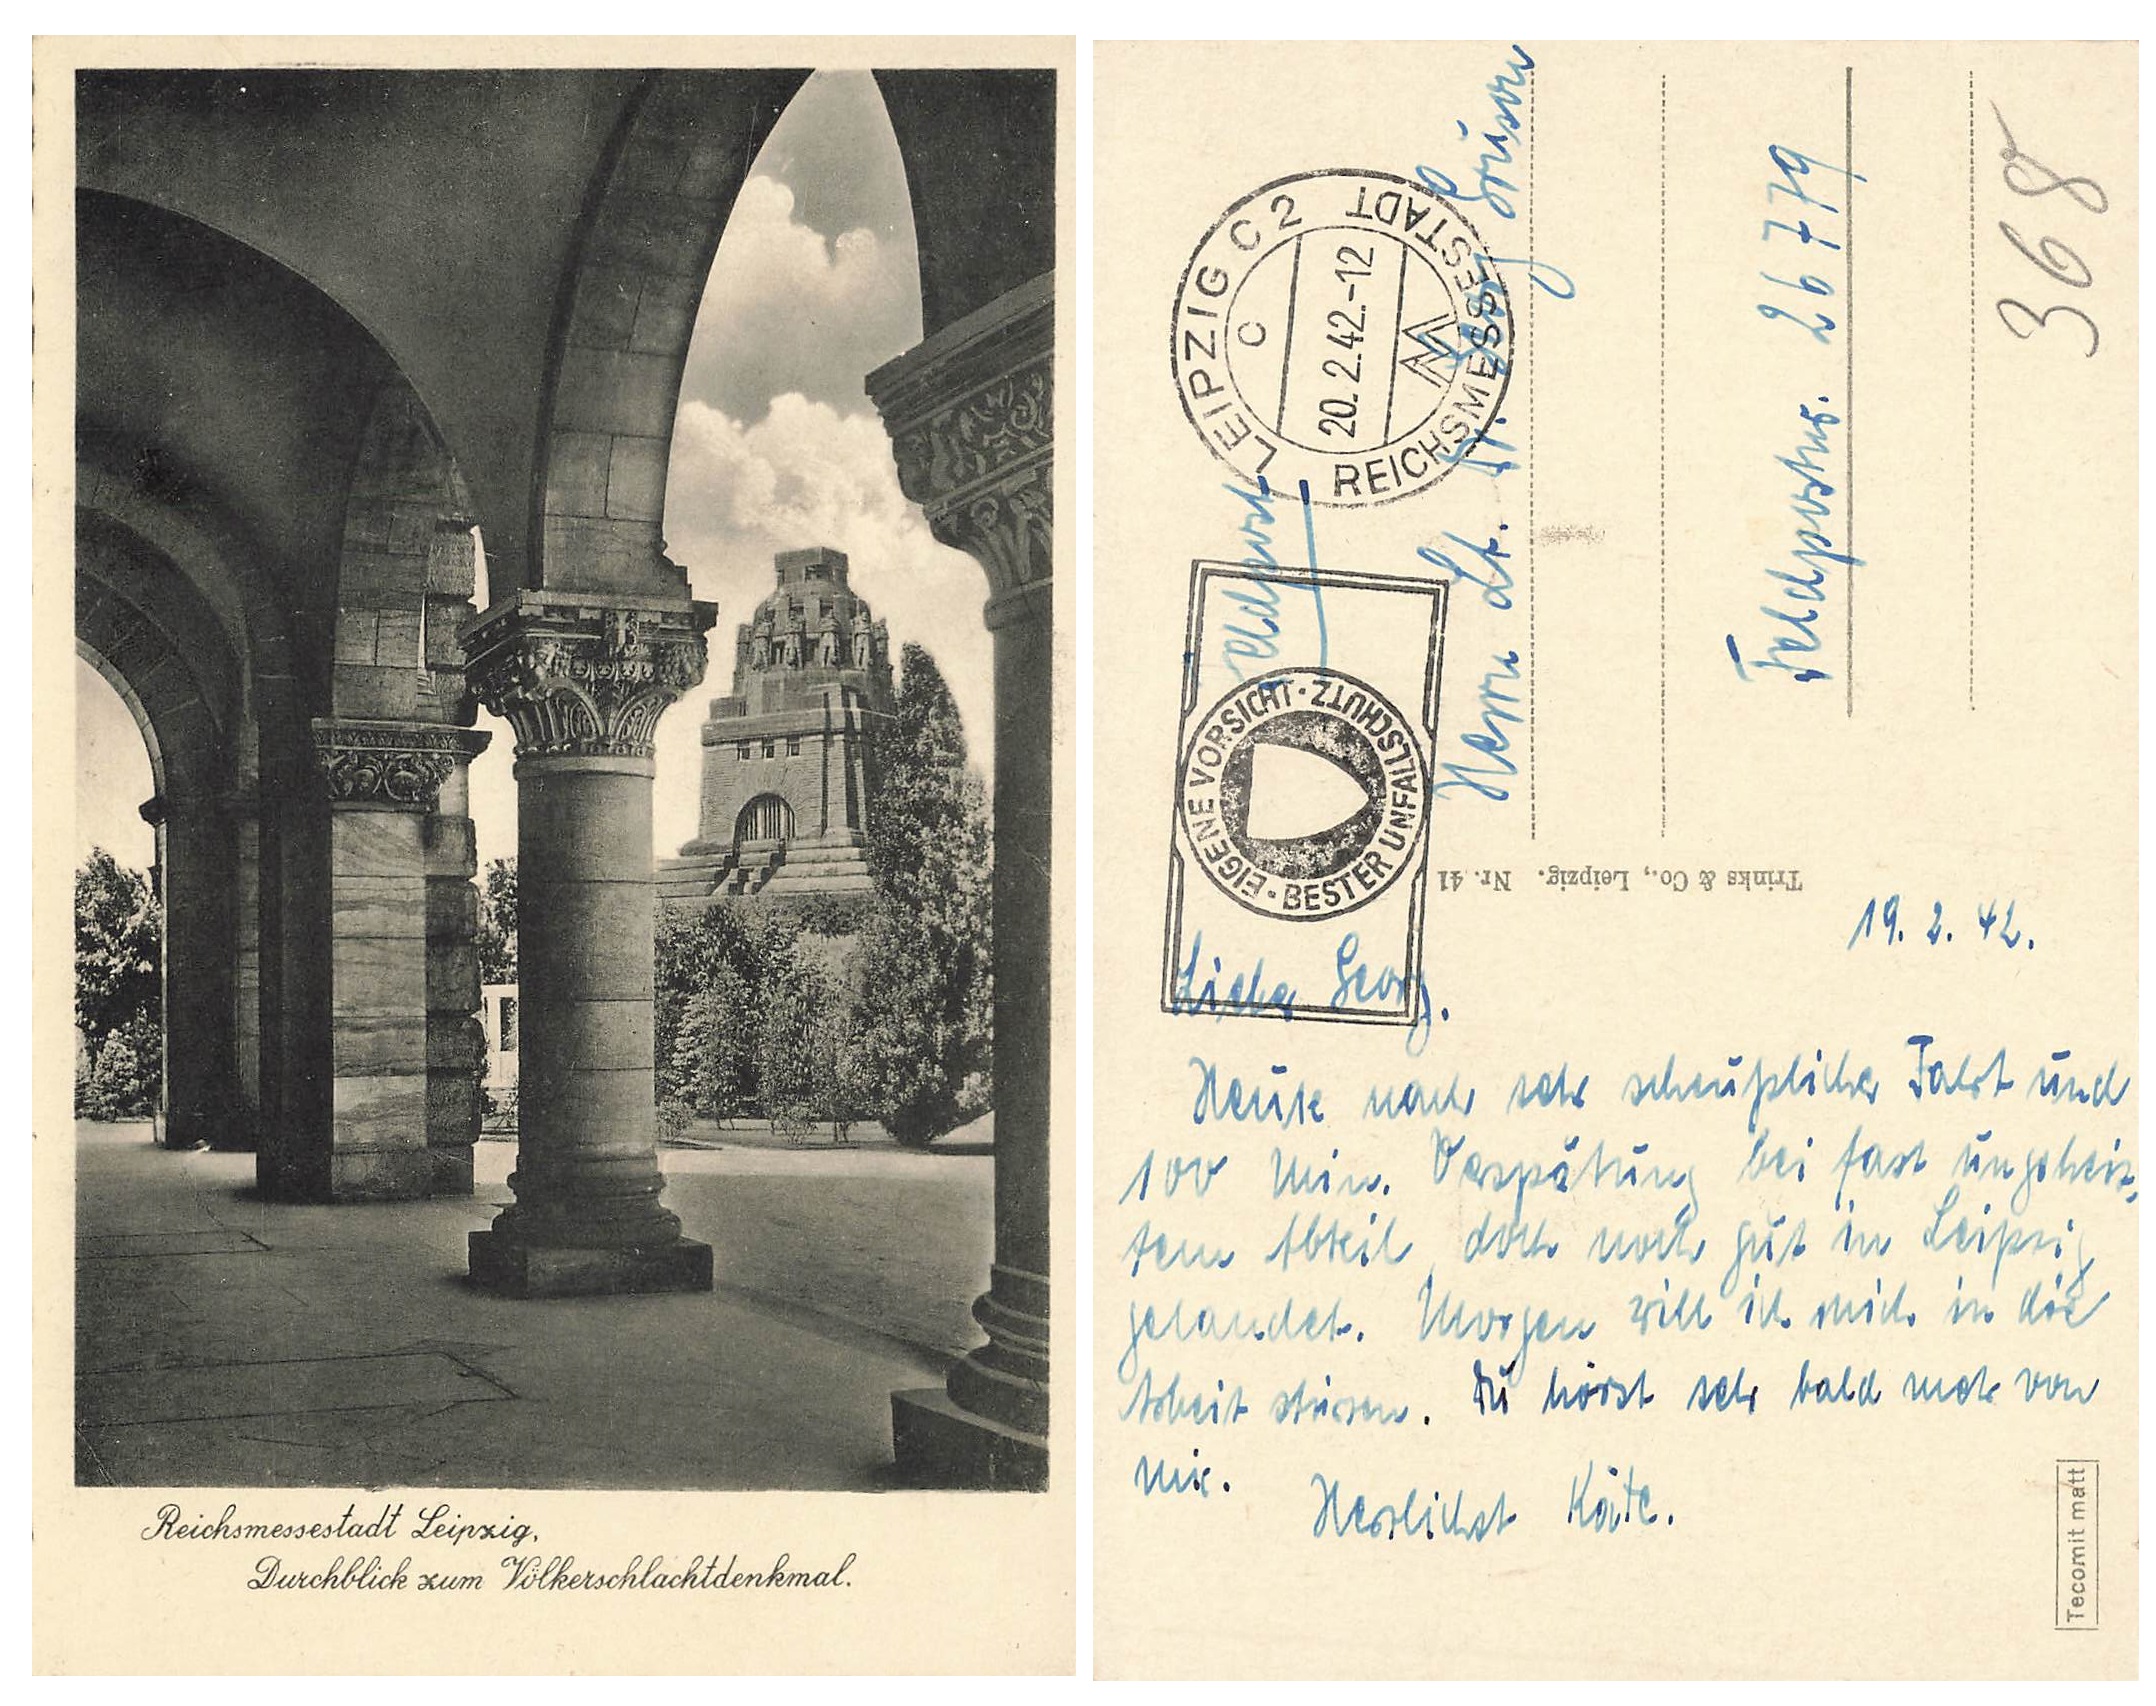 Reichsmessestadt Leipzig,
Durchblick zum Völkerschlachtdenkmal.
LEIPZIG C 2
C
20.2.42.-12
REICHSMESSESTADT
EIGENE VORSICHT · BESTER UNFALLSCHUTZ ·
Feldpost
Herrn Lt. Dr. Georg
Feldpostnr. 26779
368
Trinks & Co., Leipzig. Nr. 41
19. 2. 42.
Lieber Georg.
Heute nach sehr scheußlicher Fahrt und
100 Min. Verspätung bei fast ungeheiz-
tem Abteil doch noch gut in Leipzig
gelandet. Morgen will ich mich in die
Arbeit stürzen. Du hörst sehr bald mehr von
mir.
Herzlichst Käte.
Tecomit matt